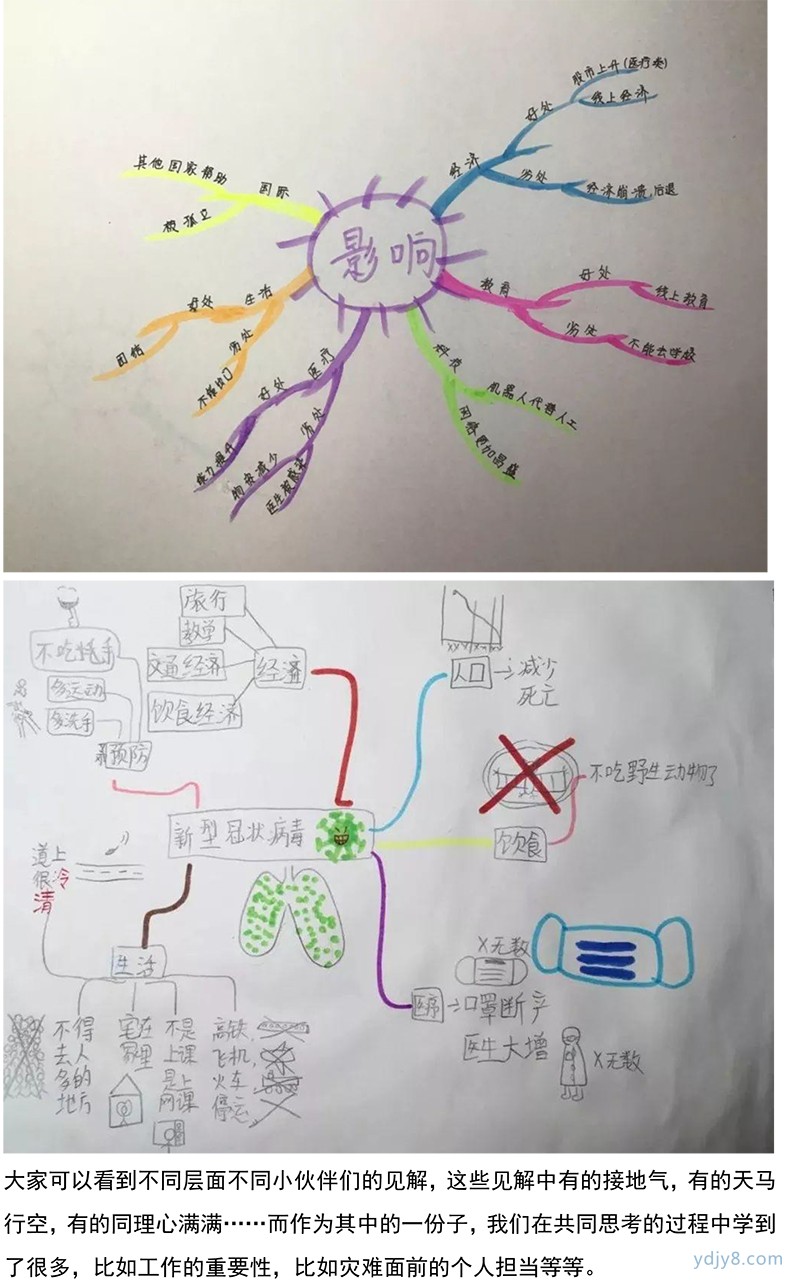 影响
经济
好处
股市上升(医疗类)
线上经济
劣处
经济崩溃,后退
教育
好处
线上教育
劣处
不能去学校
科技
机器人代替人工
网络更加昌盛
医疗
好处
能力提升
劣处
物资减少
医生被感染
生活
好处
团结
劣处
不能出门
国际
其他国家帮助
被孤立
新型冠状病毒
经济
旅行
交通经济
饮食经济
人口→减少
死亡
饮食
不吃野生动物了
X无数
→口罩断产
医生大增
X无数
生活
道上
很冷
清
不得
去人
多的
地方
宅在
家里
不是
上课
是上
网课
高铁,
飞机,
火车,
停运
预防
多运动
多洗手
大家可以看到不同层面不同小伙伴们的见解，这些见解中有的接地气，有的天马
行空，有的同理心满满……而作为其中的一份子，我们在共同思考的过程中学到
了很多，比如工作的重要性，比如灾难面前的个人担当等等。
ydjy8.com